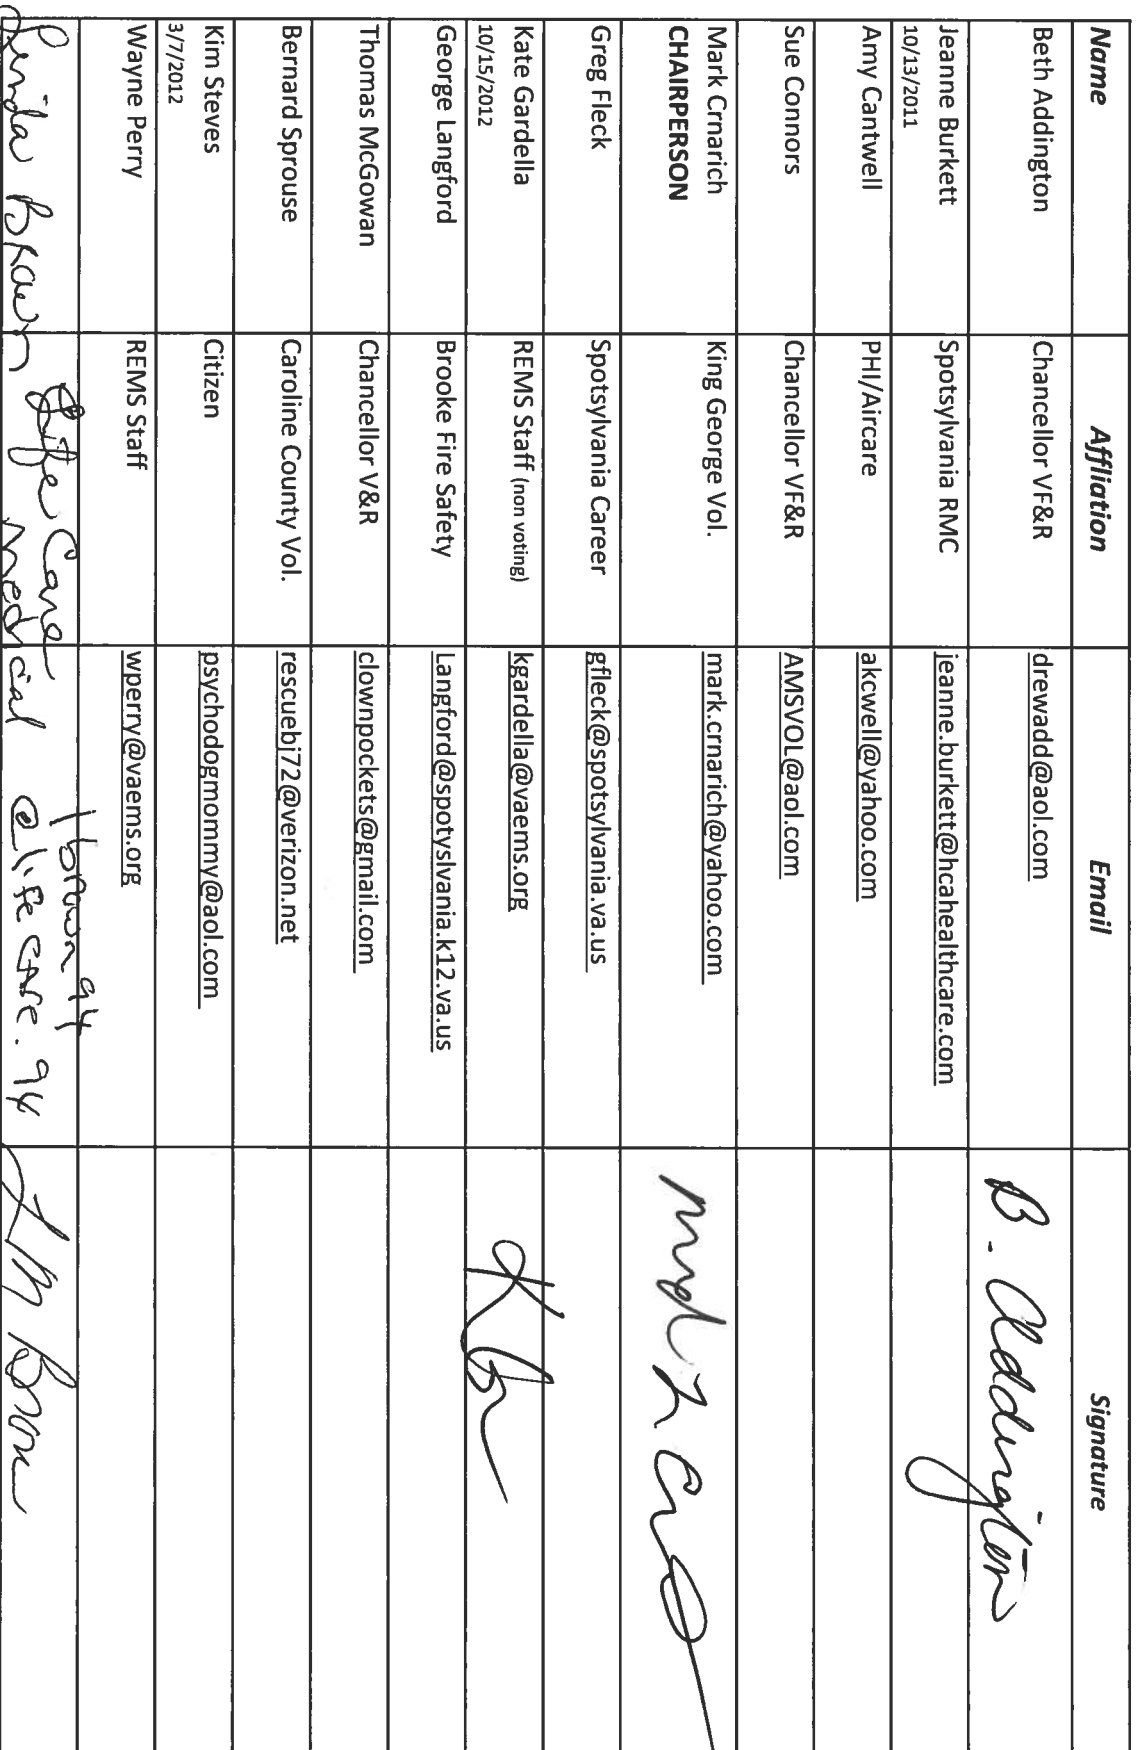 Name Affliation Email Signature
Beth Addington Chancellor VF&R drewadd@aol.com B. Addington
Jeanne Burkett Spotsylvania RMC jeanne.burkett@hcahealthcare.com
10/13/2011
Amy Cantwell PHI/Aircare akcwell@yahoo.com
Sue Connors Chancellor VF&R AMSVOL@aol.com
Mark Crnarich King George Vol. mark.crnarich@yahoo.com
CHAIRPERSON
Greg Fleck Spotsylvania Career gfleck@spotsylvania.va.us
Kate Gardella REMS Staff (non voting) kgardella@vaems.org
10/15/2012
George Langford Brooke Fire Safety Langford@spotyslvania.k12.va.us
Thomas McGowan Chancellor V&R clownpockets@gmail.com
Bernard Sprouse Caroline County Vol. rescuebj72@verizon.net
Kim Steves Citizen psychodogmommy@aol.com
3/7/2012
Wayne Perry REMS Staff wperry@vaems.org
Life Care lbrown94
Linda Brown Medical @lifecare.94 LM Brown